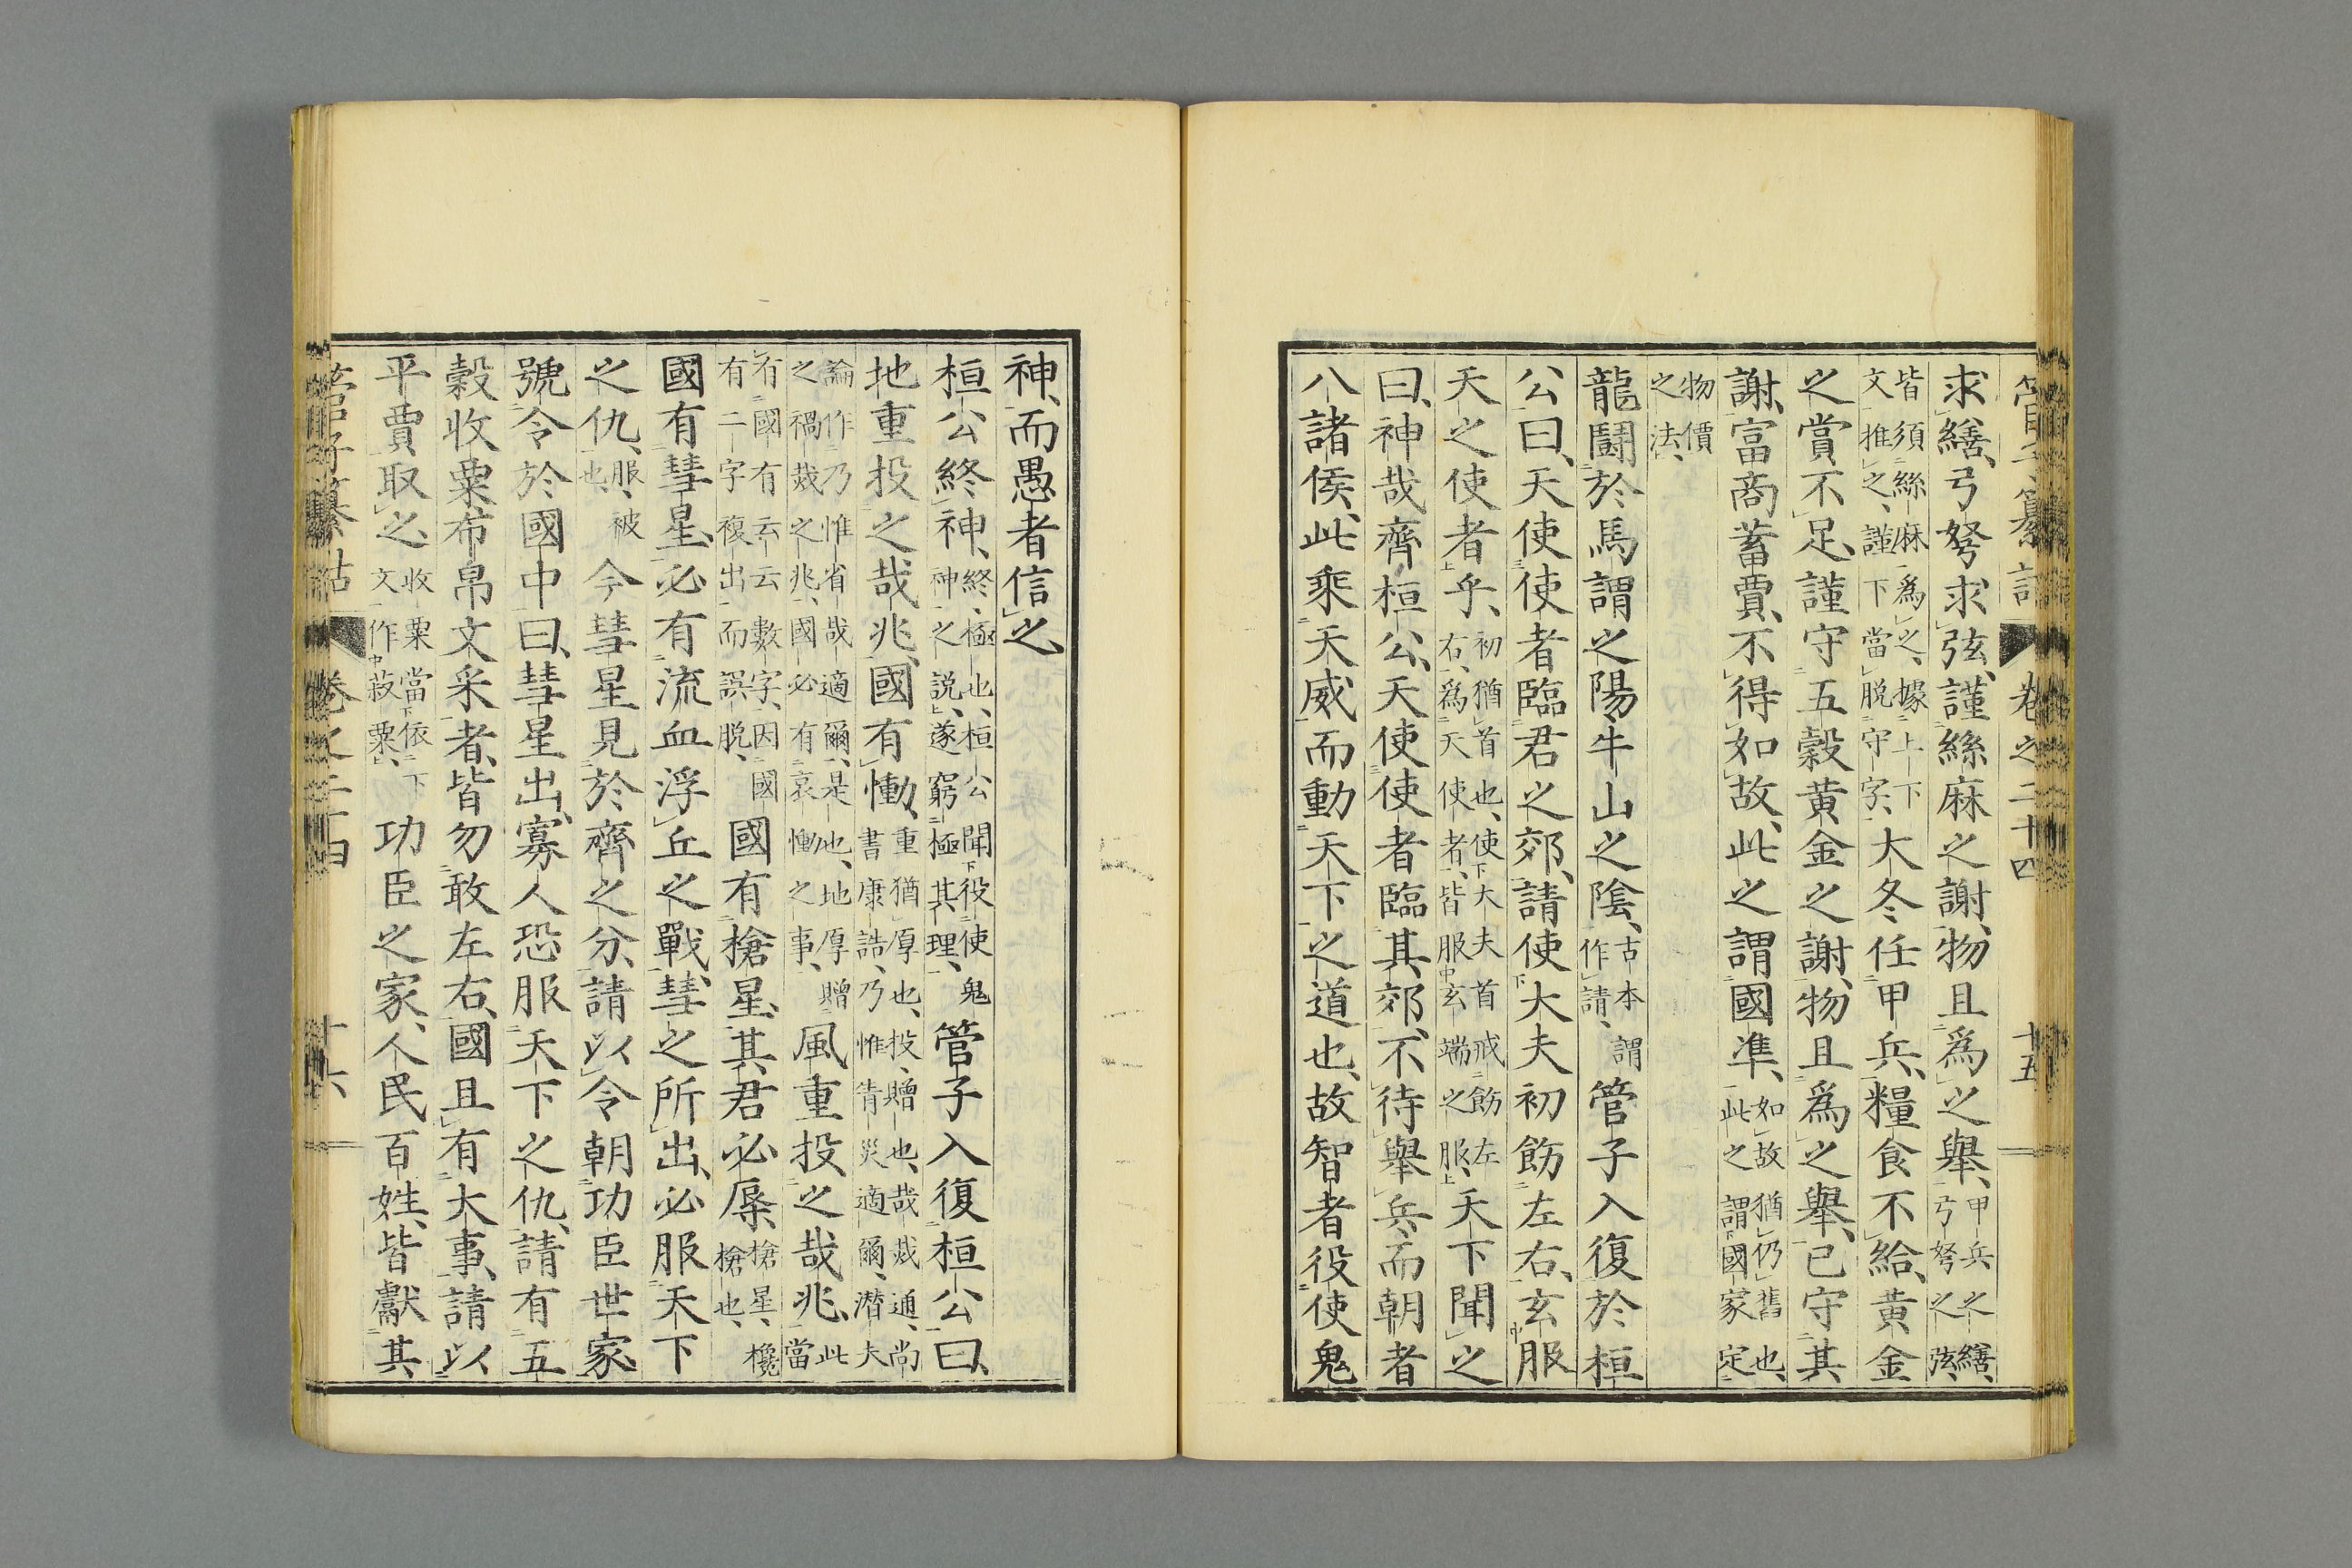 管子纂詁 卷之二十四 十五
求繕、弓弩求弦、謹絲麻之謝、物且爲之舉、甲兵之繕、弓弩之弦、
皆須絲麻爲之、據上下文推之、謹下當脱守字、大冬任甲兵、糧食不給、黄金
之賞不足、謹守五穀黄金之謝、物且爲之舉、已守其
謝、富商蓄賈、不得如故、此之謂國準、如故猶仍舊也、此之謂國家定
物價之法、
龍鬪於馬謂之陽牛山之陰、古本謂作請、管子入復於桓
公曰、天使使者臨君之郊、請使大夫初飭左右、玄服
天之使者乎、初猶首也、使大夫首戒飭左右、爲天使者、皆服玄端之服、天下聞之
曰、神哉齊桓公、天使使者臨其郊、不待舉兵、而朝者
八諸侯、此乘天威而動天下之道也、故智者役使鬼
神、而愚者信之、
桓公終神、終、極也、桓公聞役使鬼神之説、遂窮極其理、管子入復桓公曰、
地重投之哉兆、國有慟、重猶厚也、投、贈也、哉烖通、尚書康誥、乃惟眚災適爾、潜夫
論作乃惟省哉適爾、是也、地厚贈之禍烖之兆、國必有哀慟之事、風重投之哉兆、此當
有國有云云數字、因國有二字複出而誤脱、國有槍星、其君必辱、槍星、欃槍也、
國有彗星、必有流血浮丘之戰、彗之所出、必服天下
之仇、服、被也、今彗星見於齊之分、請以令朝功臣世家、
號令於國中曰、彗星出、寡人恐服天下之仇、請有五
穀收粟布帛文采者、皆勿敢左右、國且有大事、請以
平賈取之、收粟當依下文作菽粟、功臣之家、人民百姓、皆獻其
管子纂詁 卷之二十四 十六